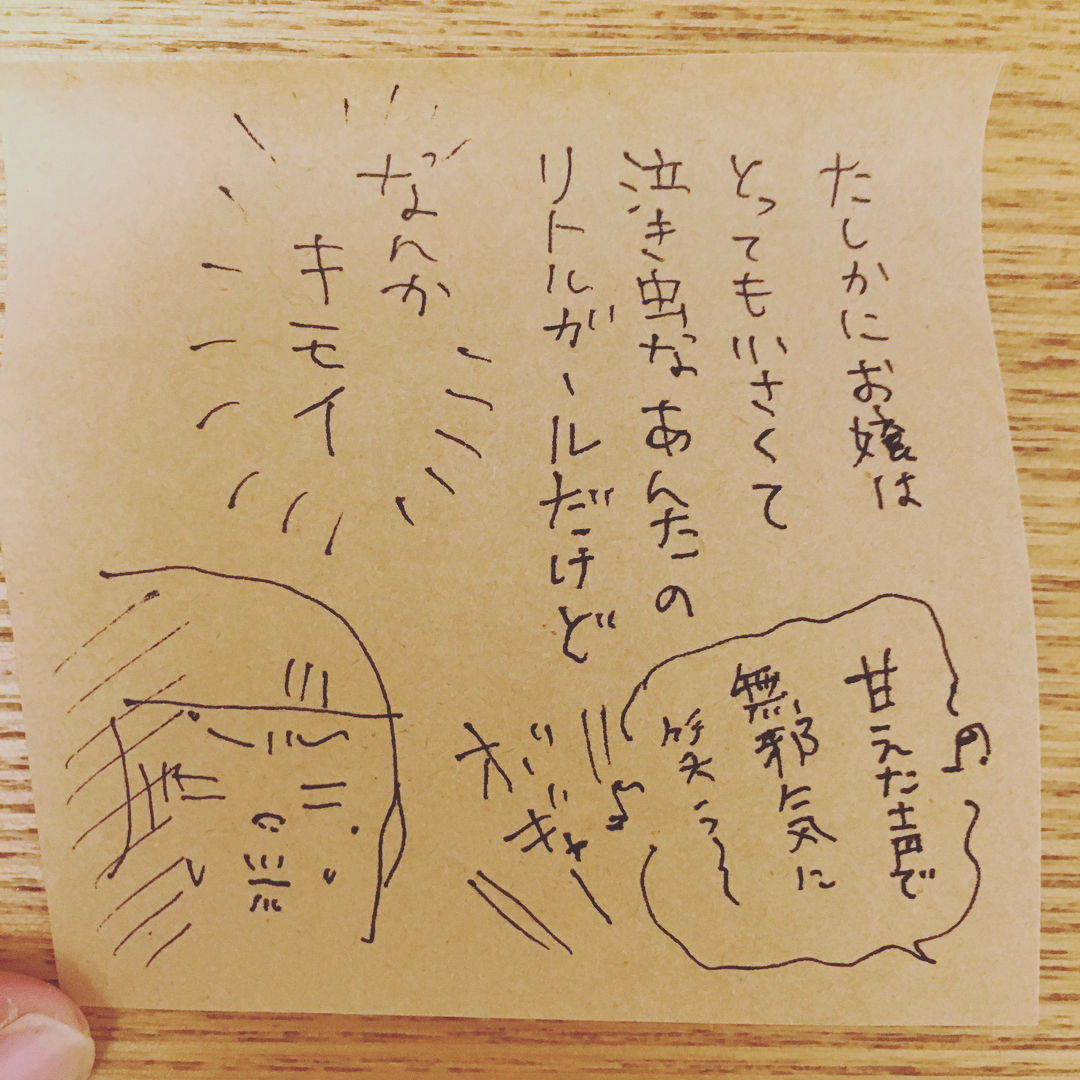 たしかにお嬢は
とっても小さくて
泣き虫なあんたの
リトルガールだけど
なんか
キモイ
甘えた声で
無邪気に
笑う〜
オギャ
オギャー